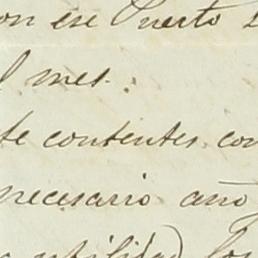 on ese Puerto
l mes.
te contentes con
necesario año
utilidad los